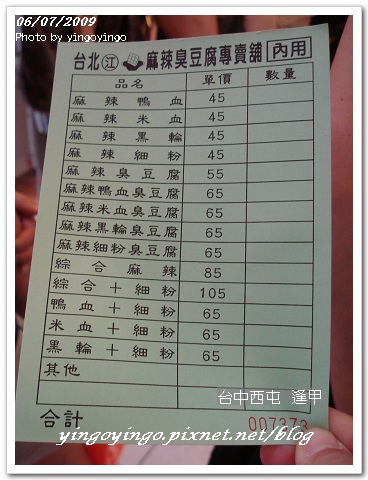 06/07/2009
Photo by yingoyingo
台北 江 麻辣臭豆腐專賣舖 內用
品名 單價 數量
麻辣鴨血 45
麻辣米血 45
麻辣黑輪 45
麻辣細粉 45
麻辣臭豆腐 55
麻辣鴨血臭豆腐 65
麻辣米血臭豆腐 65
麻辣黑輪臭豆腐 65
麻辣細粉臭豆腐 65
綜合麻辣 85
綜合十細粉 105
鴨血十細粉 65
米血十細粉 65
黑輪十細粉 65
其他
台中西屯 逢甲
合計 007373
yingoyingo.pixnet.net/blog